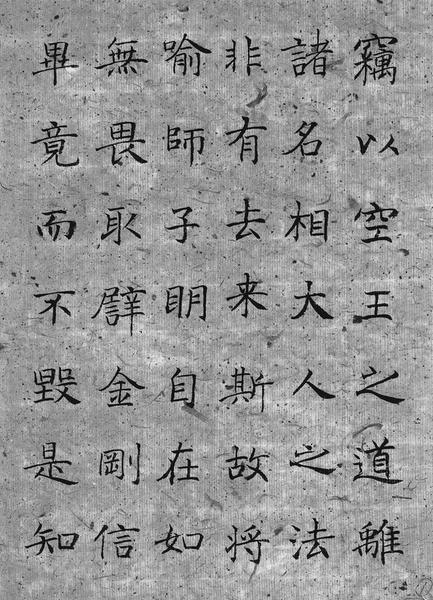 竊以空王之道離
諸名相大人之法
非有去来斯故将
喻師子眀自在如
無畏取譬金剛信
畢竟而不毀是知